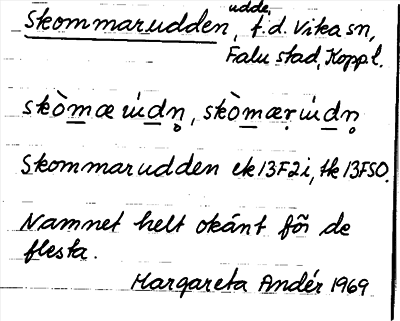 Skommarudden, udde, f.d. Vika sn,
Falu stad, Koppl.
skòmæ ùdn̥, skòmæṛ ùdn̥
Skommarudden ek 13F2i, tk 13FSO.
Namnet helt okánt för de
flesta.
Margareta Andér 1969